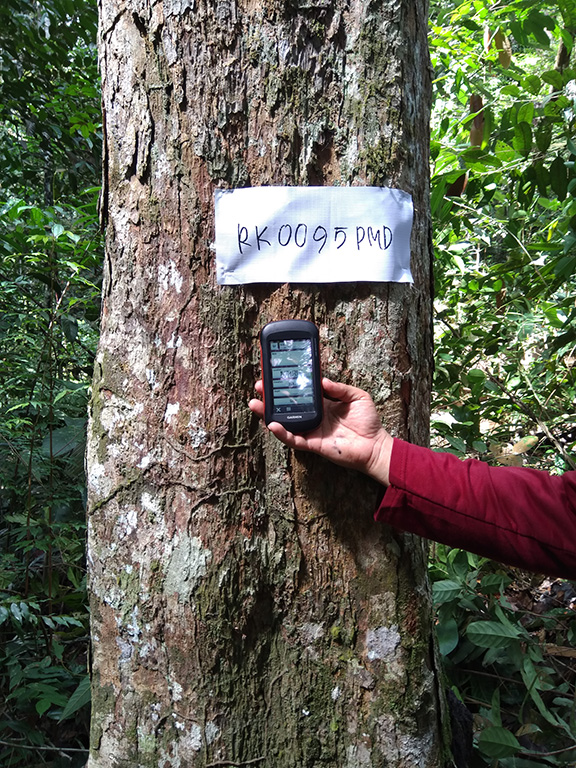 RK0095PMD
GARMIN